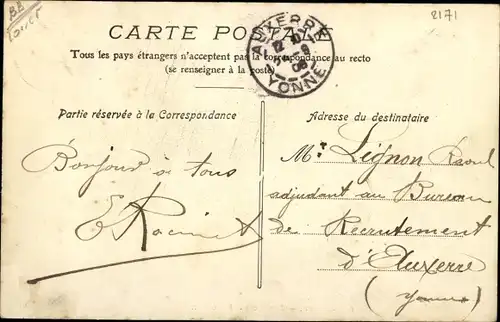 2171
CARTE POSTALE
AUXERRE
YONNE
Tous les pays étrangers n'acceptent pas la correspondance au recto
(se renseigner à la poste)
Partie réservée à la Correspondance
Bonjour à tous
E Racinet
Adresse du destinataire
Mr Lignon Raoul
adjudant au Bureau
de Recrutement
d'Auxerre
(Yonne)